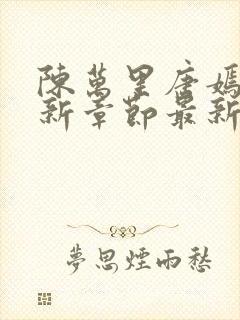 陳萬里唐嫣
新章節最新
夢思煙雨愁